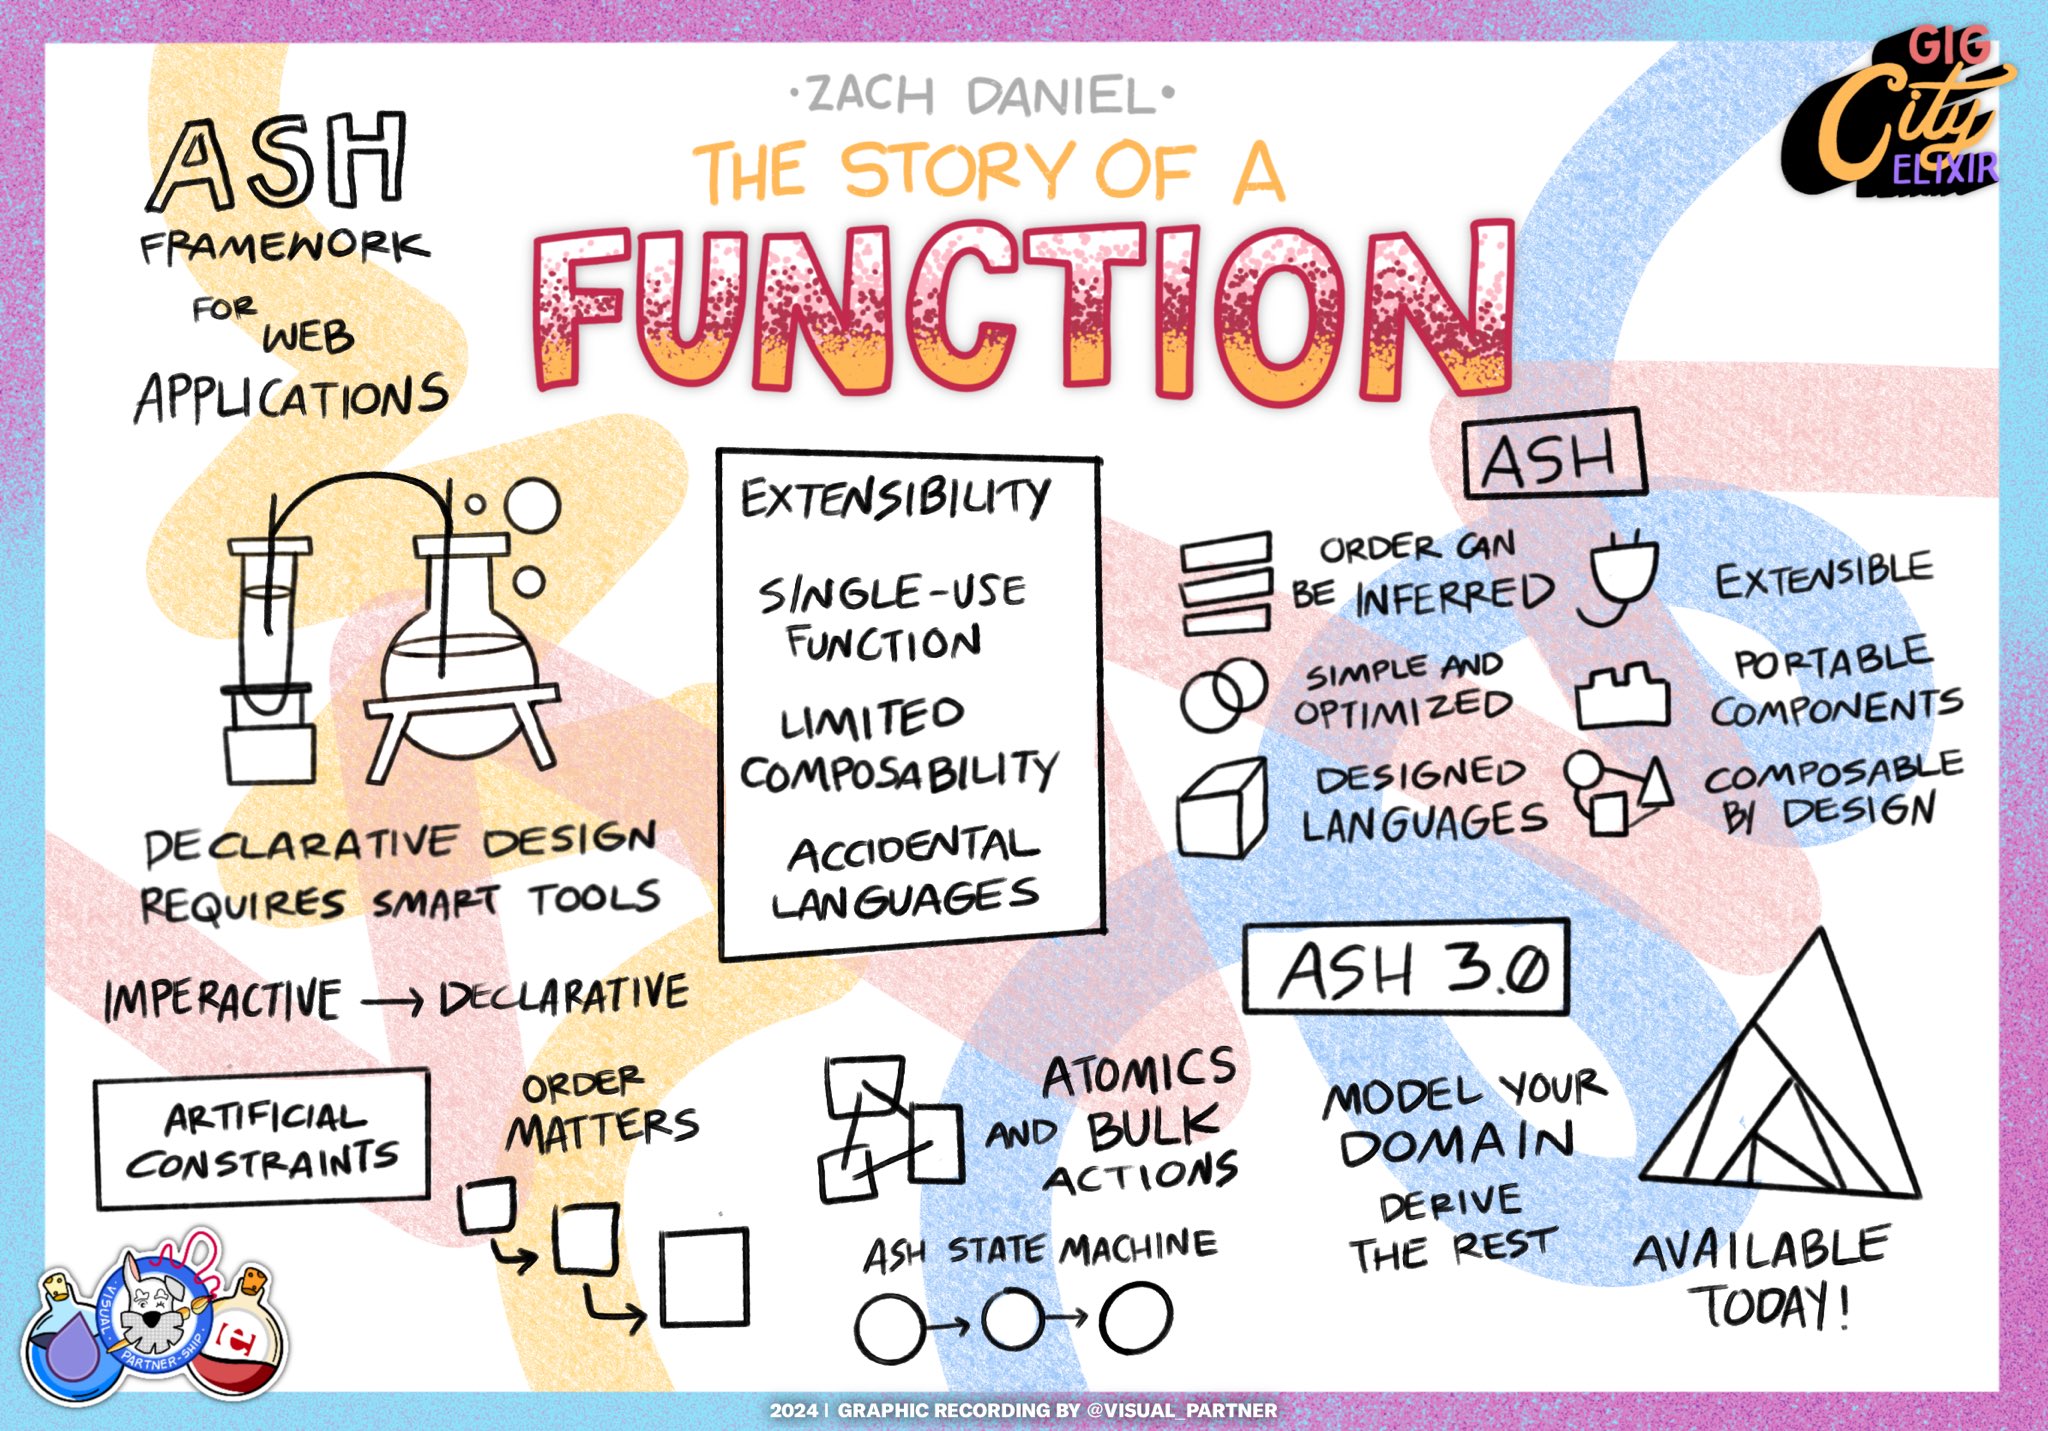 ·ZACH DANIEL·
THE STORY OF A
FUNCTION
GIG
City
ELIXIR
ASH
FRAMEWORK
FOR
WEB
APPLICATIONS
DECLARATIVE DESIGN
REQUIRES SMART TOOLS
IMPERACTIVE → DECLARATIVE
ARTIFICIAL
CONSTRAINTS
ORDER
MATTERS
EXTENSIBILITY
SINGLE-USE
FUNCTION
LIMITED
COMPOSABILITY
ACCIDENTAL
LANGUAGES
ASH
ORDER CAN
BE INFERRED
SIMPLE AND
OPTIMIZED
DESIGNED
LANGUAGES
EXTENSIBLE
PORTABLE
COMPONENTS
COMPOSABLE
BY DESIGN
ATOMICS
AND BULK
ACTIONS
ASH STATE MACHINE
ASH 3.0
MODEL YOUR
DOMAIN
DERIVE
THE REST
AVAILABLE
TODAY!
·VISUAL·
PARTNER-SHIP·
[e]
2024 | GRAPHIC RECORDING BY @VISUAL_PARTNER